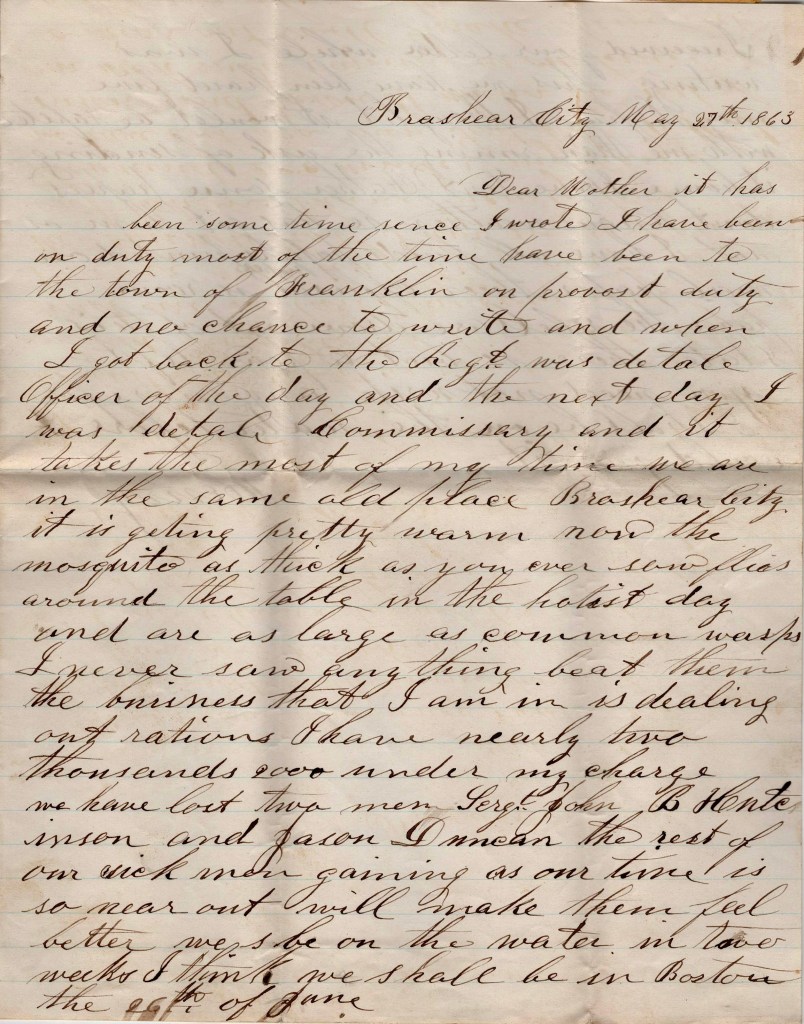 Brashear City May 27th 1863
Dear Mother it has
been some time sence I wrote I have been
on duty most of the time have been to
the town of Franklin on provost duty
and no chance to write and when
I got back to the Regt. was detale
Officer of the day and the next day I
was detale Commissary and it
takes the most of my time we are
in the same old place Brashear City
it is geting pretty warm now the
mosquito as thick as you ever saw flies
around the table in the hotist day
and are as large as common wasps
I never saw anything beat them
the buisness that I am in is dealing
out rations I have nearly two
thousands 2000 under my charge
we have lost two men Sergt. John B Hutc
inson and Jason Duncan the rest of
our sick men gaining as our time is
so near out will make them feel
better we s be on the water in two
weeks I think we shall be in Boston
the 26th. of June